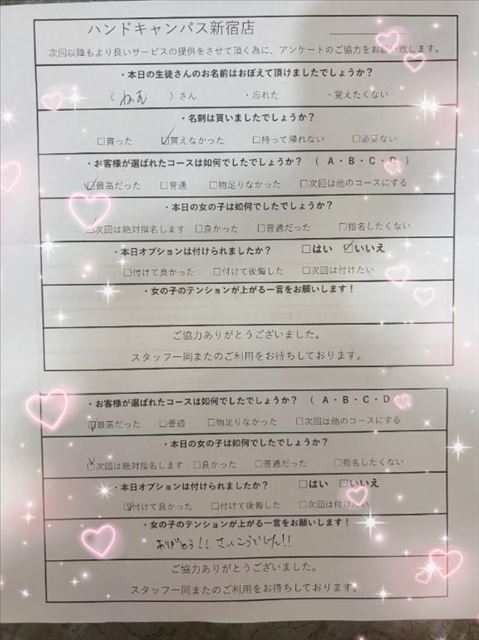 ハンドキャンパス新宿店
次回以降もより良いサービスの提供をさせて頂く為に、アンケートのご協力をお願い致します。
・本日の生徒さんのお名前はおぼえて頂けましたでしょうか？
（ ねむ ）さん ・忘れた ・覚えたくない
・名刺は貰いましたでしょうか？
□貰った ☑貰えなかった □持って帰れない □必要ない
・お客様が選ばれたコースは如何でしたでしょうか？ （ A・B・C・D ）
☑最高だった □普通 □物足りなかった □次回は他のコースにする
・本日の女の子は如何でしたでしょうか？
☑次回は絶対指名します □良かった □普通だった □指名したくない
・本日オプションは付けられましたか？ □はい ☑いいえ
□付けて良かった □付けて後悔した □次回は付けたい
・女の子のテンションが上がる一言をお願いします！
ご協力ありがとうございました。
スタッフ一同またのご利用をお待ちしております。
・お客様が選ばれたコースは如何でしたでしょうか？ （ A・B・C・D
☑最高だった □普通 □物足りなかった □次回は他のコースにする
・本日の女の子は如何でしたでしょうか？
☑次回は絶対指名します □良かった □普通だった □指名したくない
・本日オプションは付けられましたか？ □はい □いいえ
☑付けて良かった □付けて後悔した □次回は付けたい
・女の子のテンションが上がる一言をお願いします！
ありがとう!! さいこうでした!!
ご協力ありがとうございました。
スタッフ一同またのご利用をお待ちしております。